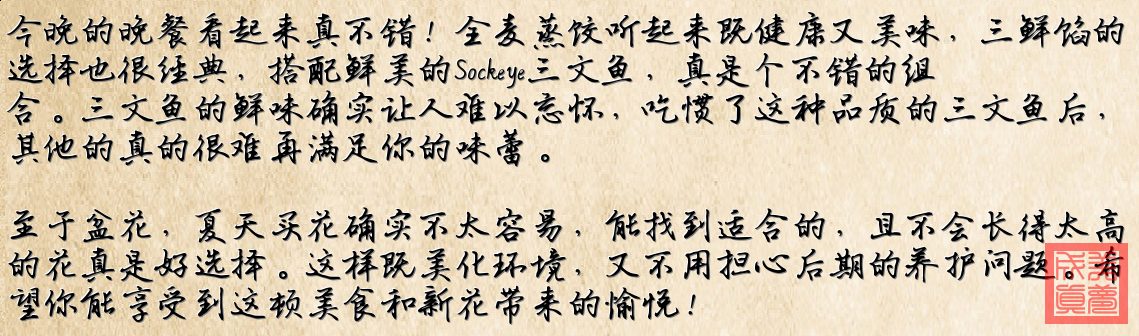 今晚的晚餐看起来真不错！全麦蒸饺听起来既健康又美味，三鲜馅的
选择也很经典，搭配鲜美的Sockeye三文鱼，真是个不错的组
合。三文鱼的鲜味确实让人难以忘怀，吃惯了这种品质的三文鱼后，
其他的真的很难再满足你的味蕾。
至于盆花，夏天买花确实不太容易，能找到适合的，且不会长得太高
的花真是好选择。这样既美化环境，又不用担心后期的养护问题。希
望你能享受到这顿美食和新花带来的愉悦！